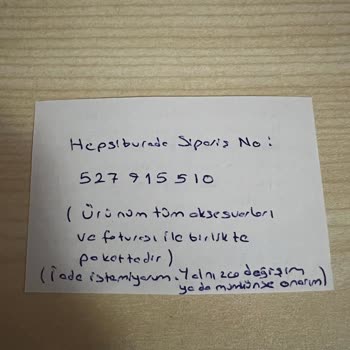 Hepsiburada Sipariş No:
527 915 510
(Ürünüm tüm aksesuarları
ve faturası ile birlikte
pakettedir)
(İade istemiyorum. Yalnızca değişim
ya da mümkünse onarım)